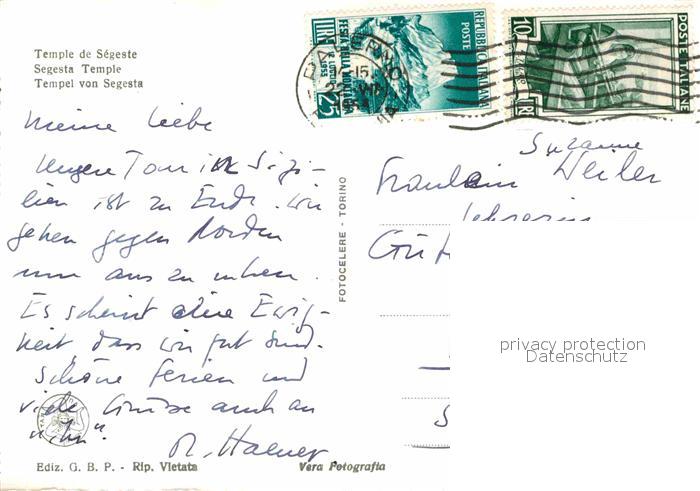 Temple de Ségeste
Segesta Temple
Tempel von Segesta
Meine Liebe
Unsere Tour in Sizi-
lien ist zu Ende. Wir
gehen gegen Norden
um aus zu ruhen.
Es scheint eine Ewig-
keit, dass wir fort sind.
Schöne Ferien und
viele Grüsse auch an
"ihn".
Ediz. G. B. P. - Rip. Vietata
Vera Fotografia
FOTOCELERE - TORINO
REPUBBLICA ITALIANA
POSTE
LIRE 25
10 LIRE
POSTE ITALIANE
Suzanne
Fräulein Weiler
Lehrerin
privacy protection
Datenschutz